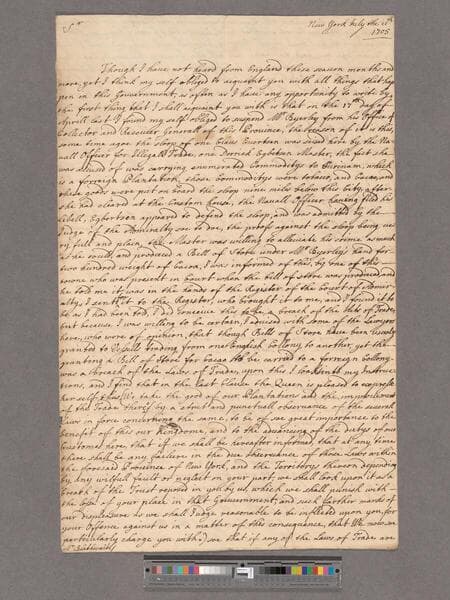 Sr
New York July the 11th
1705
Though I have not heard from England these season months and
more, yet I think my self obliged to acquaint you with all things that hap
pen in this Government, as often as I have any opportunity to write by
the first thing that I shall acquaint you with is that on the 17th day of
Aprill last I found my self obliged to suspend Mr Byerley from his Office of
Collector and Receiver Generall of this Province, the reason of it is this
some time agoe the sloop of one was seised here by the Na
vall Officer for Illegall Trade, one Derrick Egbertson Master, the fact she
was accused of was carrying enumerated Commoditys to Surinam, which
is a forreign Plantation, those Commoditys were tobacco, and Cacao, and
these goods were put on board the sloop nine miles below this City, after
she had cleared at the Custom house, the Navall Officer having filed his
Libell, Egbertson appeared to defend the sloop, and was admitted by the
Judge of the Admiralty soe to doe, the proofs against the sloop being ve
ry full and plain, the Master was willing to alleviate his crime as much
as he could, and produced a Bill of Store under Mr Byerley's hand for
two hundred weight of Cacao, I was informed of this, by one of this
towne who was present in Court when the bill of store was produced, and
he told me it was in the hands of the Register of the Court of Admir
alty, I sent to the Register, who brought it to me, and I found it to
be as I had been told, I did conceive this to be a breach of the Acts of Trade,
but because I was willing to be certain, I advised with some of the Lawyers
here, who were of opinion, that though Bills of Store have been usually
granted to Vessells trading from one English Collony to another, yet the
granting a Bill of Store for Cacao to be carried to a forreign Collony
was a breach of the Laws of Trade, upon this I looked into my Instruc
tions, and I find that in the last Clause the Queen is pleased to expresse
her self thus, We take the good of our Plantations and the improvement
of the Trade thereof by a strict and punctuall observance of the severall
Laws in force concerning the same, to be of soe great importance to the
benefit of this our Kingdome, and to the advancing of the dutys of our
Customes here, that if we shall be hereafter informed that at any time
there shall be any faileure in the due observance of those Laws within
the foresaid Province of New York, and the Territorys thereon depending
by any wilfull fault or neglect on your part, we shall look upon it as a
breach of the Trust reposed in you by us, which we shall punish with
the loss of your place in that Government, and such farther marks of
our displeasure as we shall Judge reasonable to be inflicted upon you, for
your Offence against us in a matter of this consequence, that We now soe
particularly charge you with, I see that if any of the Laws of Trade are
Mr Blathwayt